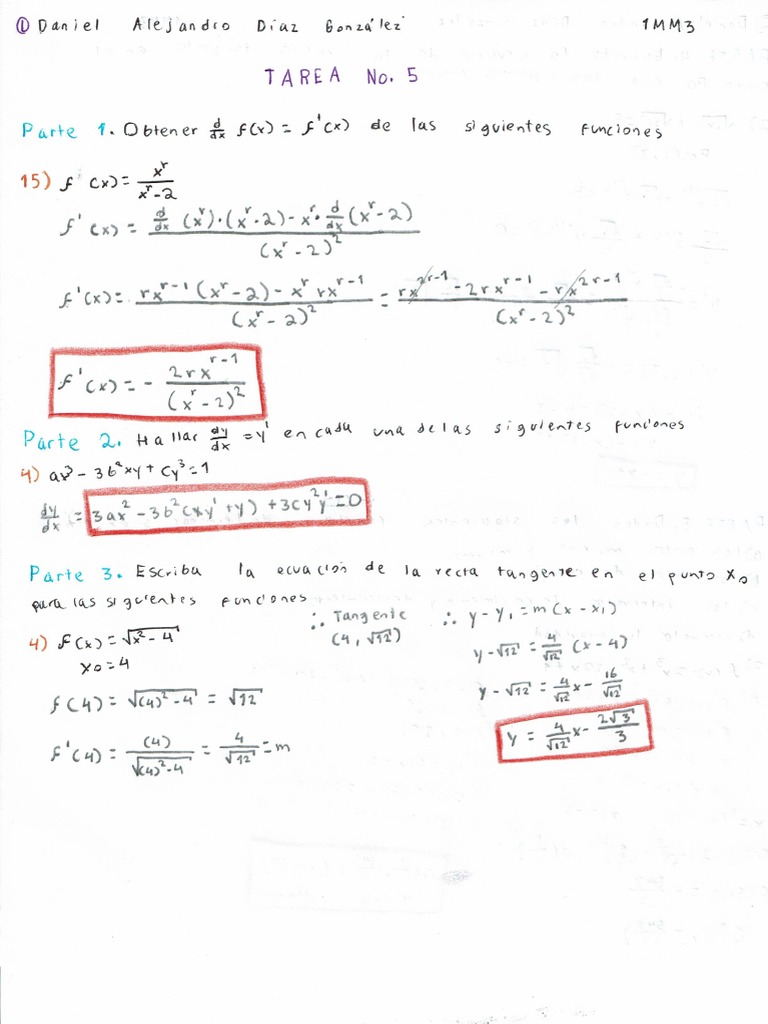 ① Daniel Alejandro Díaz González 1MM3
TAREA No. 5
Parte 1. Obtener d/dx f(x) = f'(x) de las siguientes funciones
15) f(x) = x^r / (x^r - 2)
f'(x) = (d/dx (x^r)·(x^r - 2) - x^r · d/dx (x^r - 2)) / (x^r - 2)^2
f'(x) = (rx^(r-1) (x^r - 2) - x^r rx^(r-1)) / (x^r - 2)^2 = (rx^(2r-1) - 2rx^(r-1) - rx^(2r-1)) / (x^r - 2)^2
f'(x) = - 2rx^(r-1) / (x^r - 2)^2
Parte 2. Hallar dy/dx = y' en cada una de las siguientes funciones
4) ax^3 - 3b^2xy + Cy^3 = 1
dy/dx = 3ax^2 - 3b^2(xy' + y) + 3cy^2y' = 0
Parte 3. Escriba la ecuación de la recta tangente en el punto x₀
para las siguientes funciones
4) f(x) = √(x^2 - 4)
x₀ = 4
f(4) = √((4)^2 - 4) = √12
f'(4) = (4) / √((4)^2 - 4) = 4/√12 = m
∴ Tangente
(4, √12)
∴ y - y₁ = m(x - x₁)
y - √12 = 4/√12 (x - 4)
y - √12 = 4/√12 x - 16/√12
y = 4/√12 x - 2√3/3